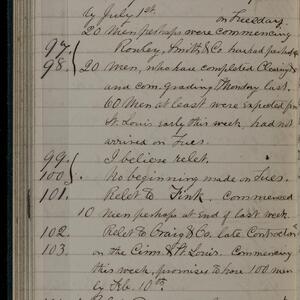 by July 1st. on Tuesday.
20 Men perhaps were commencing
97. Rowley, Smith & Co has had perhaps
98. 20 men, who have completed Clearing
and com. grading Monday last.
60 Men at least were expected from
St. Louis early this week, had not
arrived on Tues.
99. I believe relet.
100. No beginning made on Tues.
101. Relet to Fink. Commenced
10 men perhaps at end of last week.
102. Relet to Craig & Co. late Contractor
103. on the Cinn. & St. Louis. Commencing
this week, promises to have 100 men
by Feb. 10th.